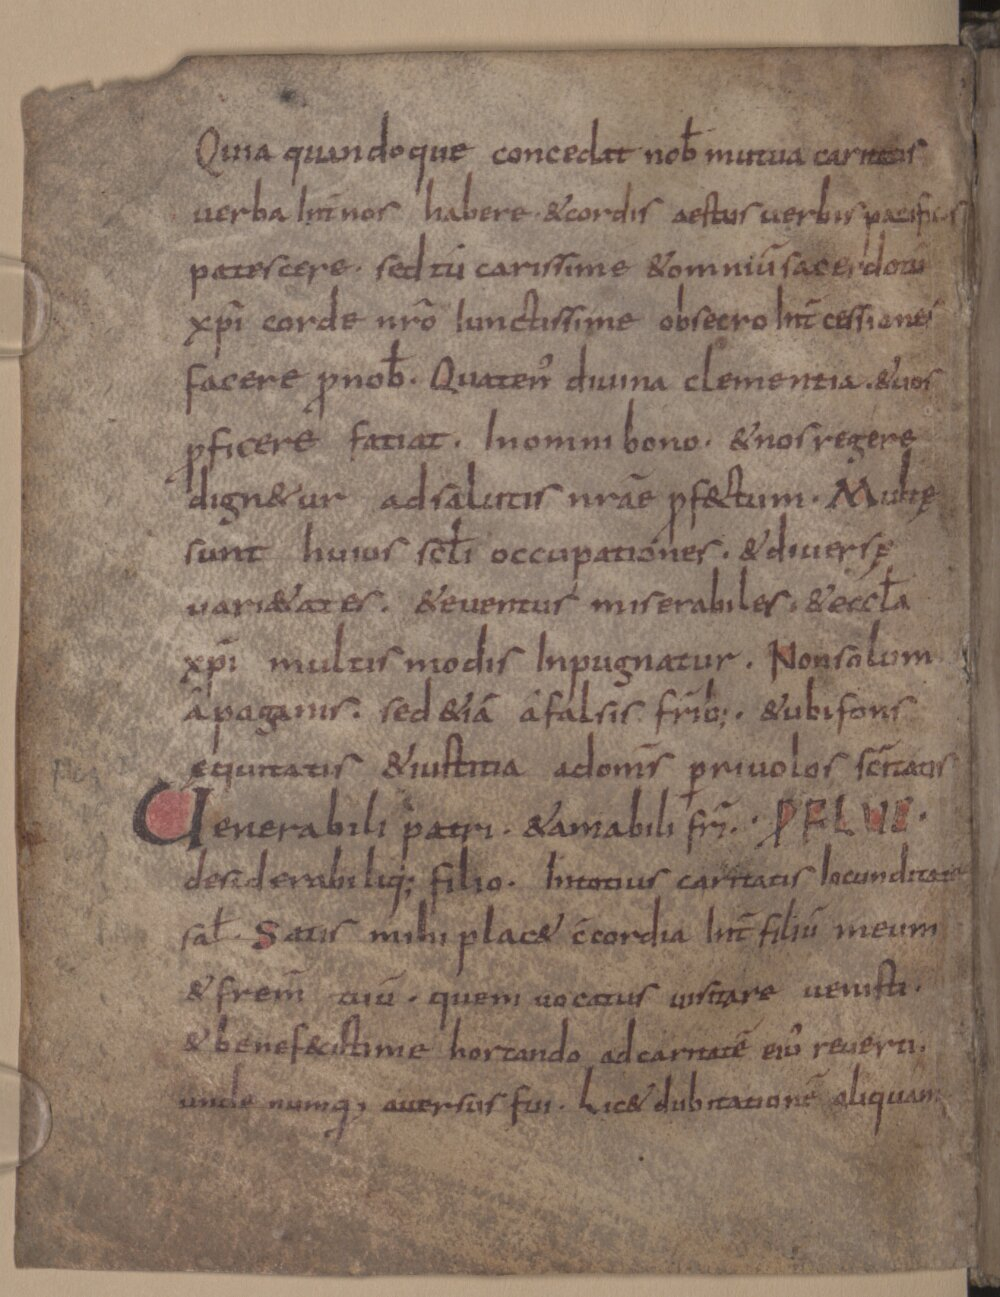 Quia quandoque concedat nob̄ mutua caritatis
verba int̄ nos habere · & cordis aestus verbis pacificis
patescere · sed tū carissime & omniū sacerdotū
xp̄i corde nr̄o Iunctissime obsecro Int̄cessiones
facere ꝓ nob̄ · Quaten᾿ diuina clementia · & uos
ꝓficere fatiat · In omni bono · & nos regere
dign&ur ad salutis nr̄ae ꝓf&ctum · Multę
sunt huius scl̄i occupationes · & diuersę
uari&ates · & euentus miserabiles · & eccl̄a
xp̄i multis modis Inpugnatur · Non solum
a paganis · sed &iā a falsis frīb; · & ubi fons
equitatis & iustitia ad om̄s ꝑ riuolos sc̄itatis
Uenerabili patri · & amabili fr̄i · PELUI ·
desiderabiliq; filio · In totius caritatis Iocunditate
sal̄ · Satis mihi plac& c̄cordia Int̄ filiū meum
& frem̄ tuū · quem uocatus uisitare uenisti ·
& benef&istime hortando ad caritatē ei᾿ reuerti ·
unde numq; auersus fui · Lic& dubitationē aliquam